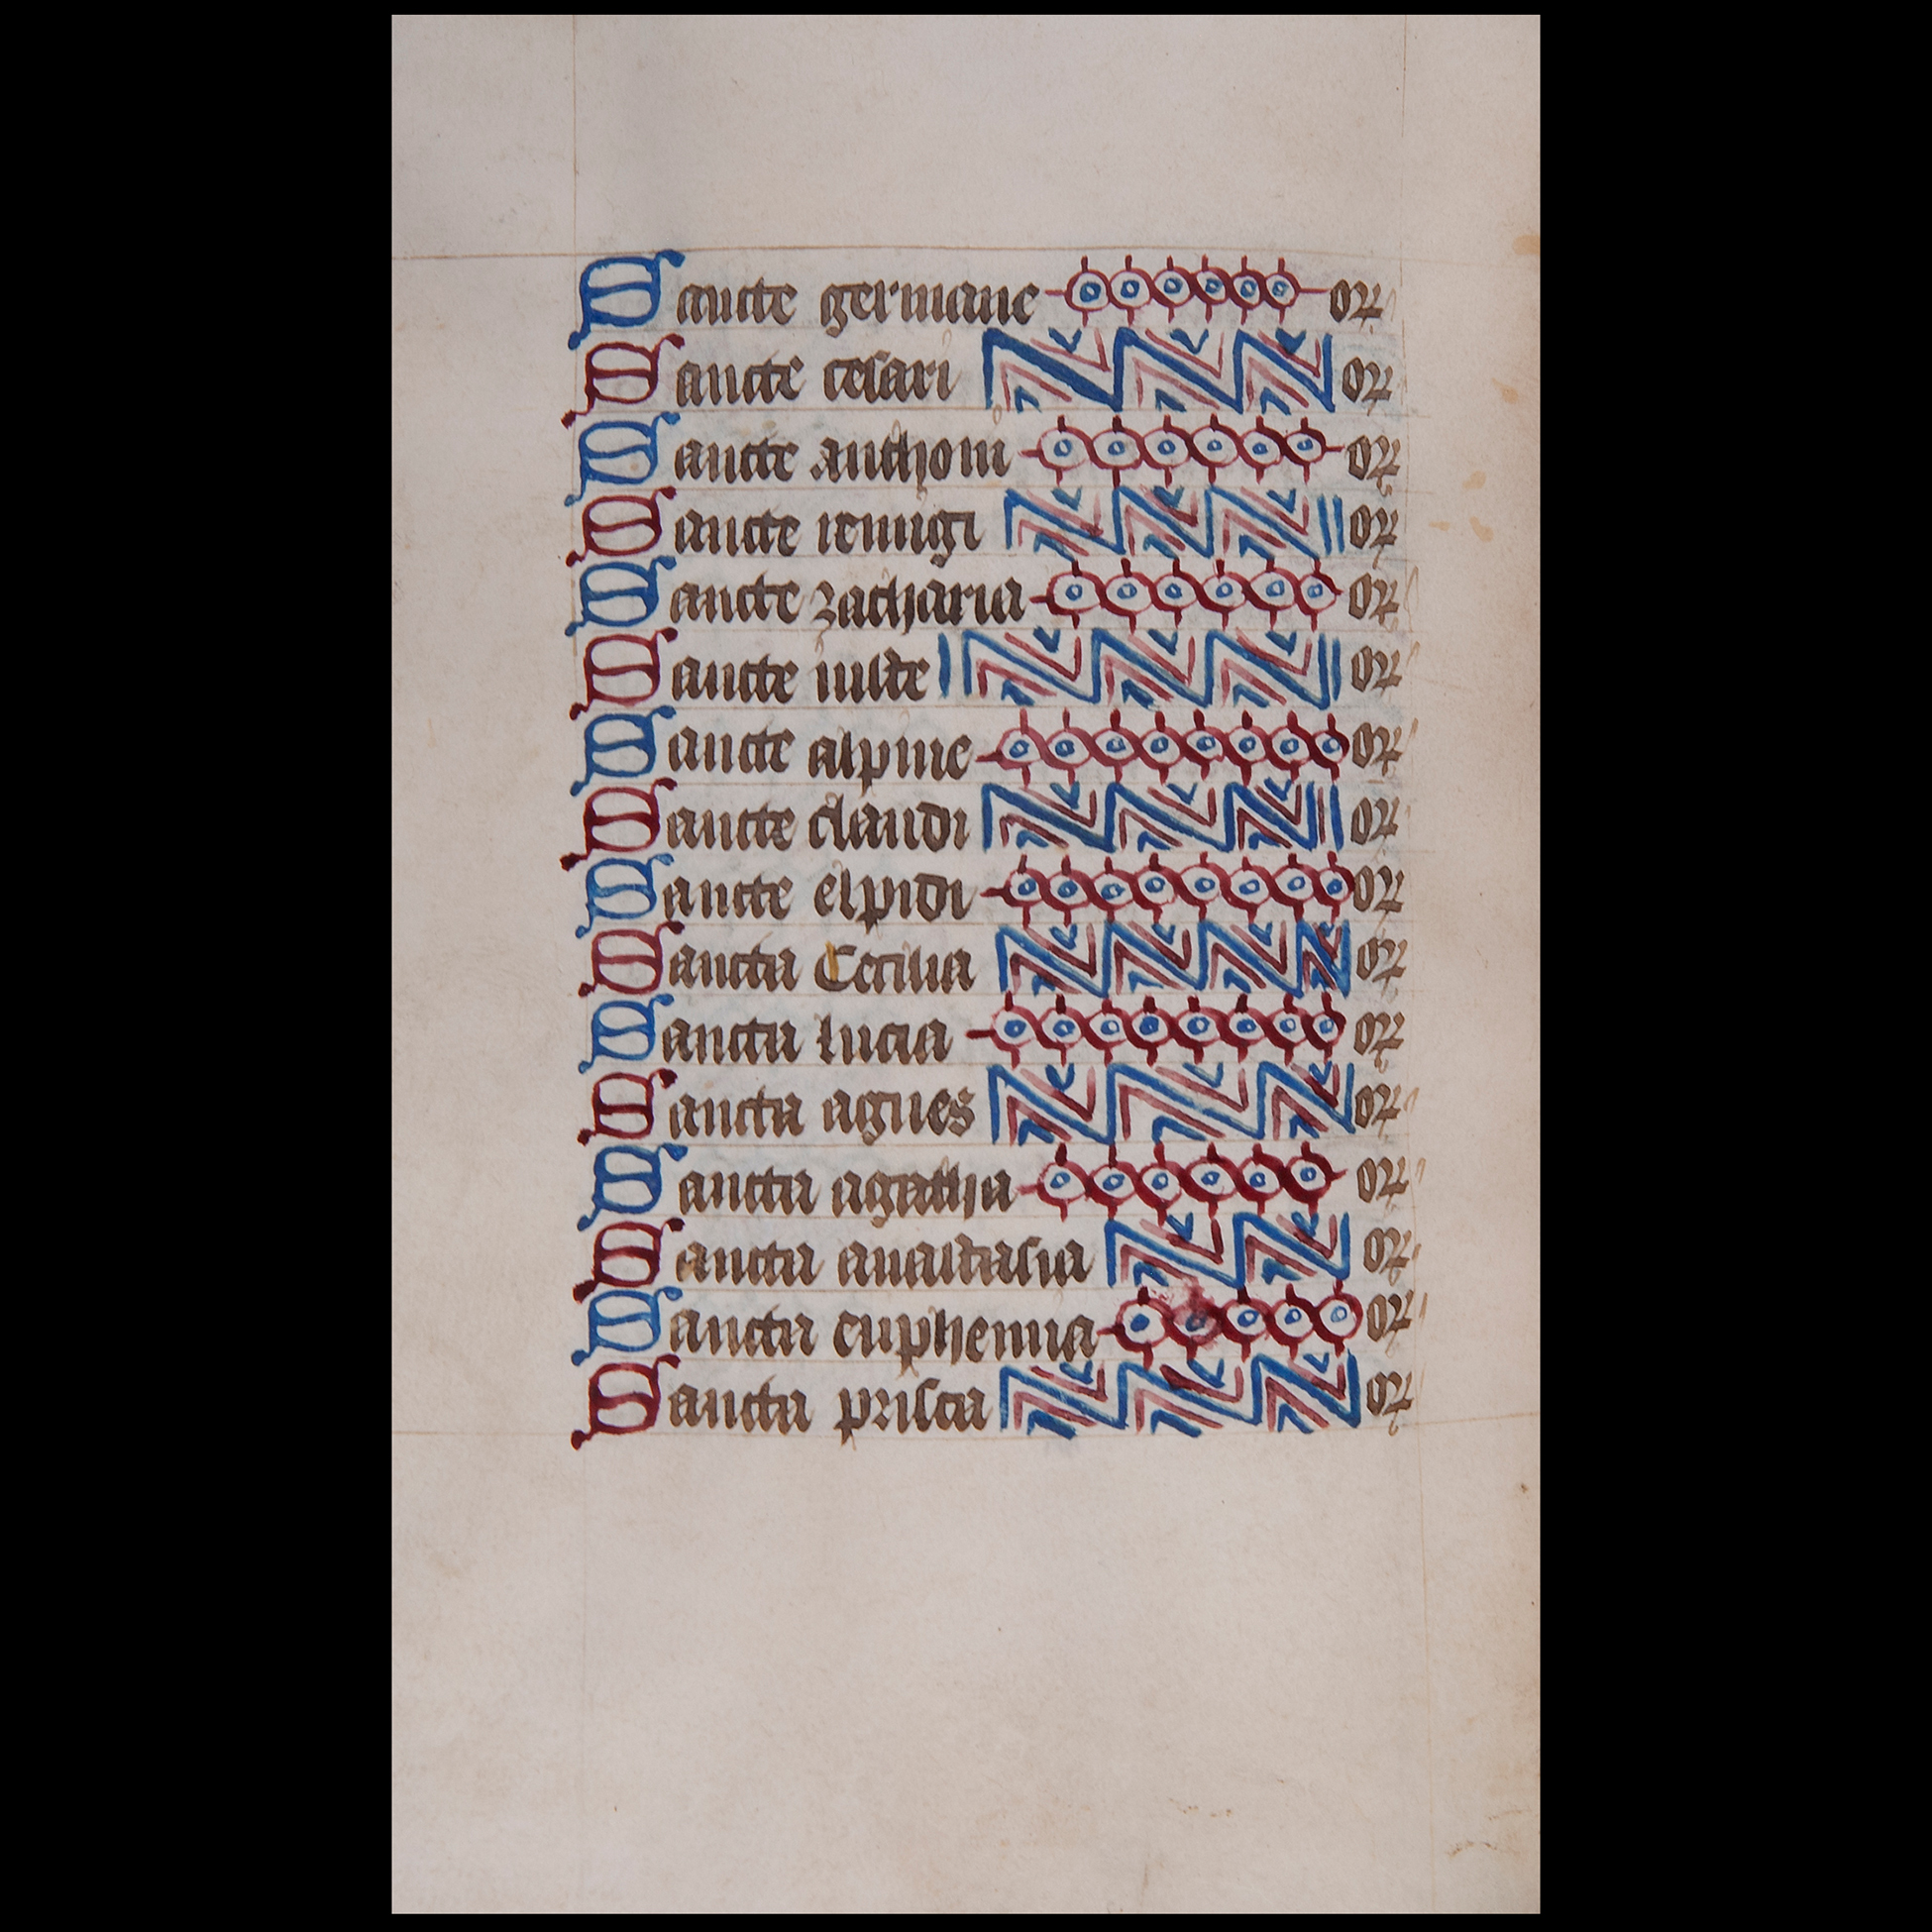 Sancte germane or
Sancte cesari or
Sancte anthoni or
Sancte remigi or
Sancte zacharia or
Sancte iuste or
Sancte alpine or
Sancte claudi or
Sancte elpidi or
Sancta Cecilia or
Sancta lucia or
Sancta agnes or
Sancta agatha or
Sancta anastasia or
Sancta euphemia or
Sancta prisca or